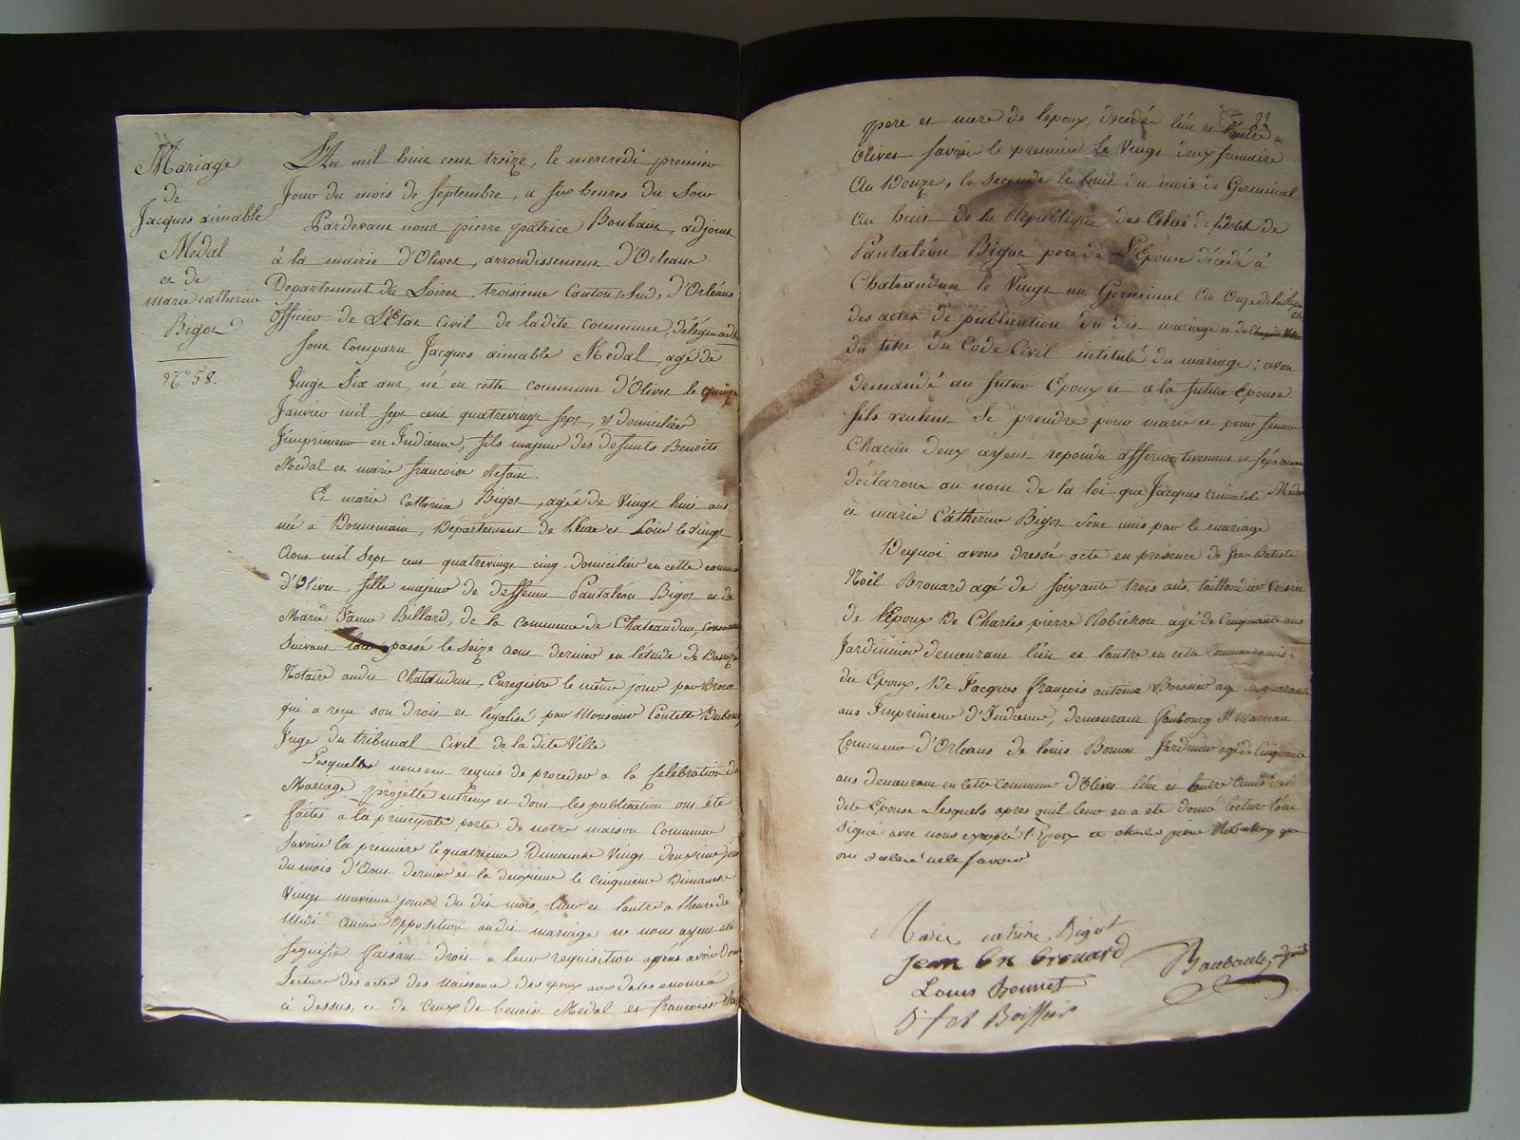 Mariage
de
Jacques aimable
Medal
et de
marie catherine
Bigot
N° 58.
L'An mil huit cent treize, le mercredi premier
Jour du mois de Septembre, a six heures du Soir
Pardevant nous pierre patrice Baubault, adjoint
à la mairie d'Olivet, arrondissement d'Orleans
Departement du Loiret, troisieme Canton, Sud, d'Orléans
officier de L'Etat Civil de ladite commune, délégué
Sont Comparu Jacques aimable Medal, agé de
Vingt Six ans, né en cette commune d'Olivet le quinze
Janvier mil sept cent quatrevingt sept, y domicilié
Imprimeur en Indienne, fils majeur des defunts Benoits
Medal et marie francoise
Et marie catherine Bigot, agée de Vingt huit ans
né a Bonneval, Departement de l'Eure et Loir le vingt
Aout mil Sept cent quatrevingt cinq domiciliée en cette commune
d'Olivet, fille majeur de deffunts Pantaléon Bigot et de
Marie Billard, de la commune de Chateaudun,
Suivant passé le Seize Aout dernier en l'étude de
Notaire audit Chateaudun, Enregistré le même jour par
qui a reçu son droit et légalisé par Monsieur
Juge du tribunal Civil de la dite Ville
Lesquels nous ont requis de proceder a la Celebration du
Mariage projetté entr'eux et dont les publication ont été
faites a la principale porte de notre maison Commune
Savoir la premiere le quatrieme Dimanche Vingt deuxieme jour
du mois d'Aout dernier et la deuxieme le Cinquieme Dimanche
Vingt neuvieme jour du dit mois, l'une et l'autre a l'heure de
Midi Aucune opposition audit mariage ne nous ayant été
signifié faisant droit a leur requisition apres avoir donné
Lecture des actes des Naissance des epoux aux dates enoncé
ci dessus, et de Ceux de benoist Medal et francoise
pere et mere de lepoux, decedé l'un et l'autre a
Olivet Savoir le premier le Vingt deux frimaire
An Douze, la Seconde le huit du mois de Germinal
An huit de la République des Celui de décès de
Pantaléon Bigot pere de L'Epouse décédé à
Chateaudun le Vingt un Germinal An Onze
des actes de publication du dit mariage et du Chapitre
du titre du Code Civil intitulé du mariage; avons
demandé au futur Epoux et a la future Epouse
Sils veulent Se prendre pour mari et pour femme
Chacun deux ayant repondu affirmativement et séparément
déclarons au nom de la loi que Jacques aimable Medal
et marie Catherine Bigot Sont unis par le mariage
Dequoi avons dressé acte en présence de Jean Batiste
Noël Brouard agé de soixante trois ans,
de l'Epoux De Charles pierre Robichon agé de Cinquante ans
Jardinier demeurant l'un et l'autre en cette Commune amis
du Epoux, De Jacques françois antoine Boissier agé de quarante
ans Imprimeur d'Indienne, demeurant faubourg St marceau
Commune d'Orléans de louis Bonnet Jardinier agé de Cinquante
ans demeurant en cette Commune d'Olivet l'un et l'autre amis de la
dite Epouse Lesquels apres quil leur en a eté donné lecture l'ont
Signé avec nous excepté l'Epoux et charles pierre Robichon qui
ont déclaré ne le savoir
Marie catrine Bigot
Jean bn brouard
Baubault, adjoint
Louis Bonnet
Boissier